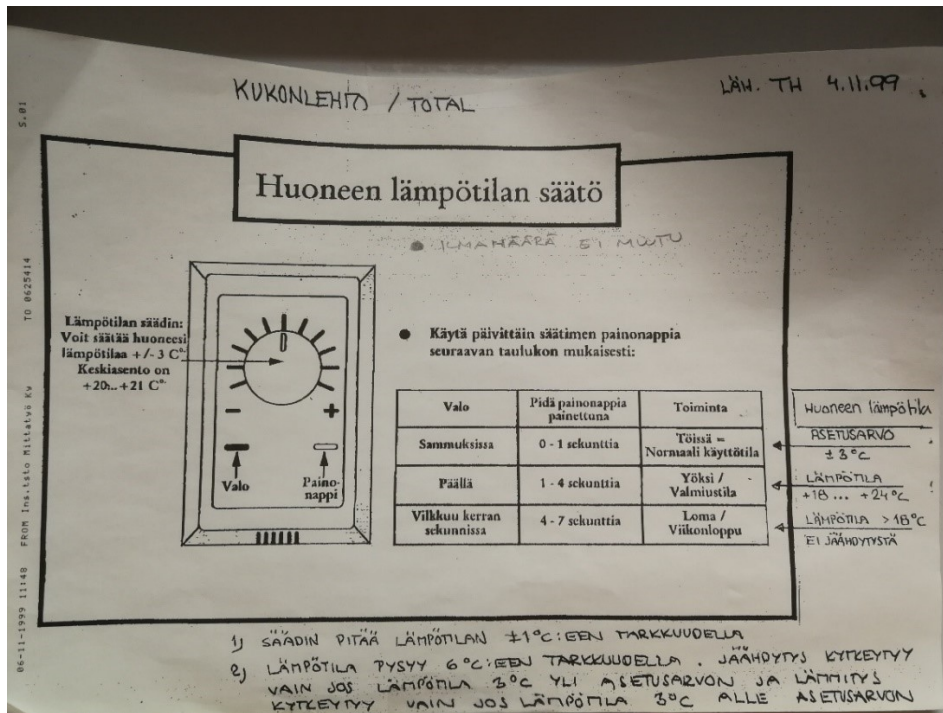 KUKONLEHTO / TOTAL
LÄH. TH 4.11.99
S.01
TO 0625414
FROM Ins.tsto Mittatyö Kv
06-11-1999 11:48
Huoneen lämpötilan säätö
● ILMAMÄÄRÄ EI MUUTU
Lämpötilan säädin:
Voit säätää huoneesi
lämpötilaa +/- 3 C°.
Keskiasento on
+20... +21 C°.
- +
Valo
Paino-
nappi
● Käytä päivittäin säätimen painonappia
seuraavan taulukon mukaisesti:
Valo Pidä painonappia painettuna Toiminta
Sammuksissa 0 - 1 sekunttia Töissä = Normaali käyttötila
Päällä 1 - 4 sekunttia Yöksi / Valmiustila
Vilkkuu kerran sekunnissa 4 - 7 sekunttia Loma / Viikonloppu
Huoneen lämpötila
ASETUSARVO
± 3°C
LÄMPÖTILA
+18 ... +24°C
LÄMPÖTILA > 18°C
EI JÄÄHDYTYSTÄ
1) SÄÄDIN PITÄÄ LÄMPÖTILAN ±1°C:EEN TARKKUUDELLA
2) LÄMPÖTILA PYSYY 6°C:EEN TARKKUUDELLA. JÄÄHDYTYS KYTKEYTYY
VAIN JOS LÄMPÖTILA 3°C YLI ASETUSARVON JA LÄMMITYS
KYTKEYTYY VAIN JOS LÄMPÖTILA 3°C ALLE ASETUSARVON